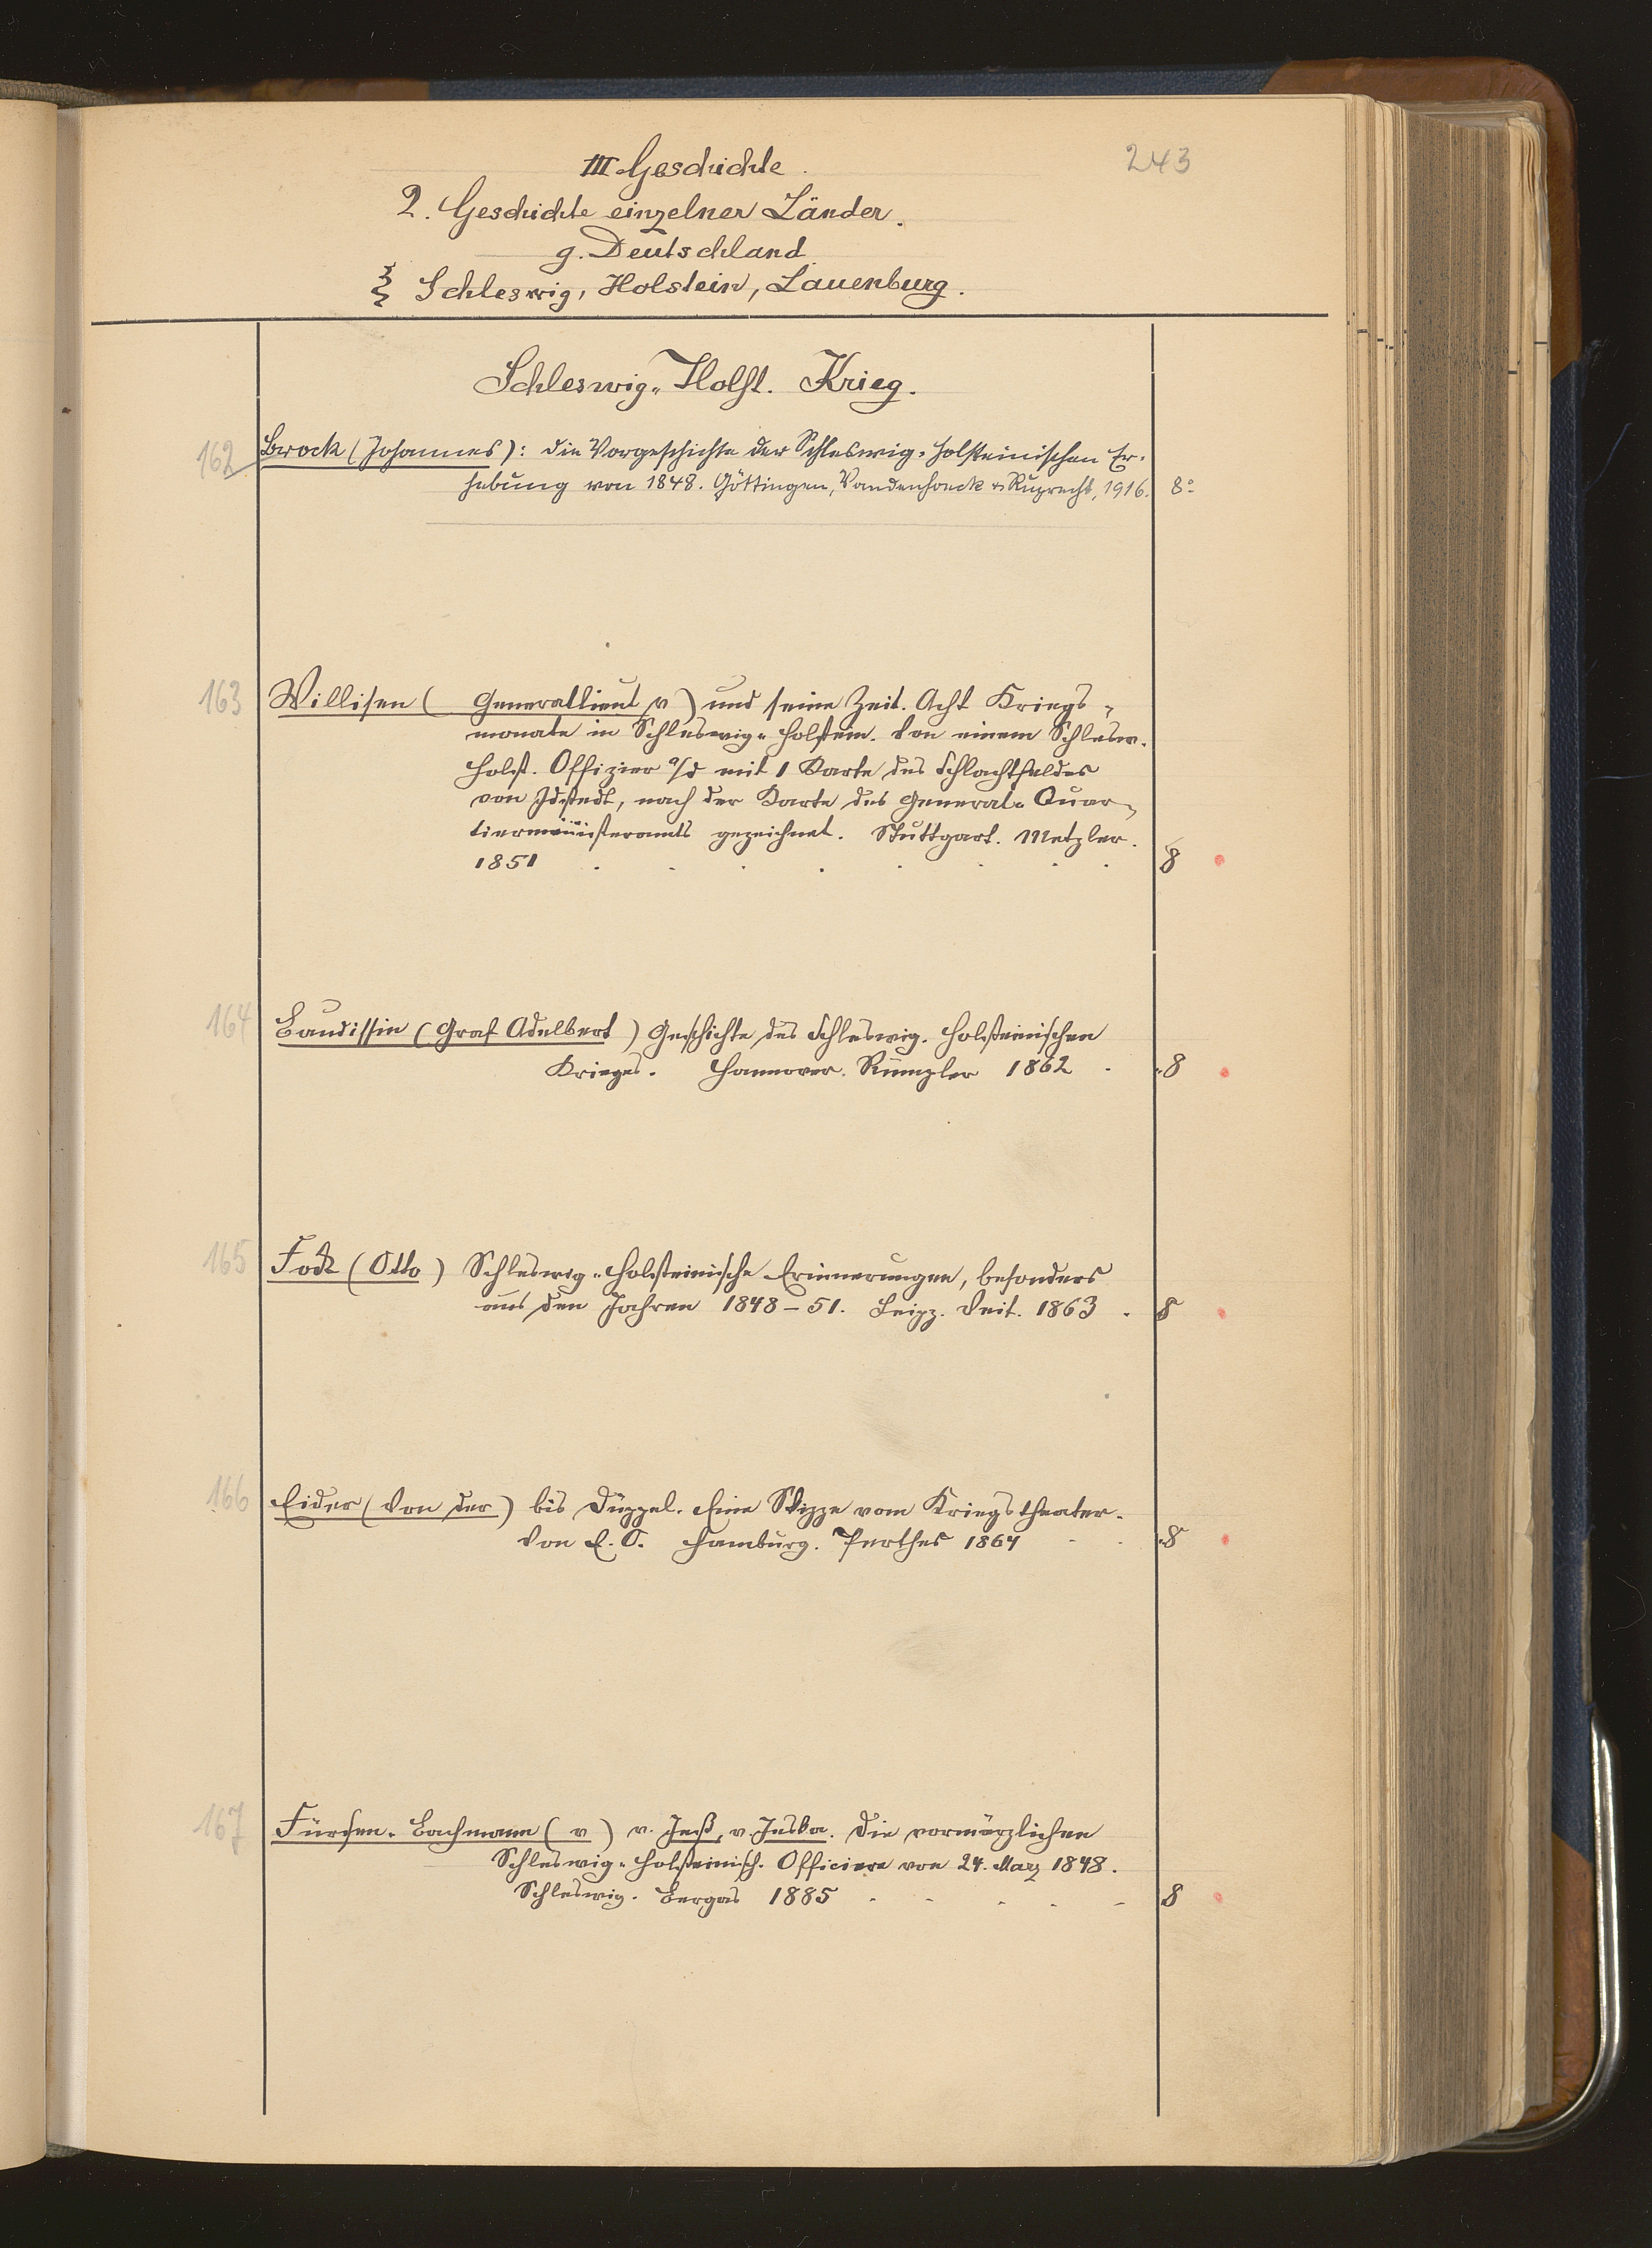 243
III Geschichte.
2. Geschichte einzelner Länder.
g. Deutschland.
ξ Schleswig, Holstein, Lauenburg.
Schleswig-Holst. Krieg.
162 Brock (Johannes): Die Vorgeschichte der Schleswig-Holsteinischen Er-
hebung von 1848. Göttingen, Vandenhoeck & Ruprecht, 1916. 8°
163 Willisen ( Generallieut v) und seine Zeit. Acht Kriegs-
monate in Schleswig-Holstein. Von einem Schlesw.
Holst. Offizier a/d mit 1 Karte des Schlachtfeldes
von Idstedt, nach der Karte des General-Quar-
tiermeisteramts gezeichnet. Stuttgart. Metzler.
1851 8
164 Baudissin (Graf Adelbert) Geschichte des Schleswig-Holsteinischen
Krieges. Hannover. Rümpler 1862 8
165 Fock (Otto) Schleswig-Holsteinische Erinnerungen, besonders
aus den Jahren 1848-51. Leipz. Veit. 1863 8
166 Eider (Von der) bis Düppel. Eine Skizze vom Kriegstheater.
Von E. O. Hamburg. Perthes 1864 8
167 Fürsen-Bachmann (v) v. Jeß, v. Jeska. Die vormärzlichen
Schleswig-Holsteinisch. Officiere von 24. März 1848.
Schleswig. Bergas 1885 8